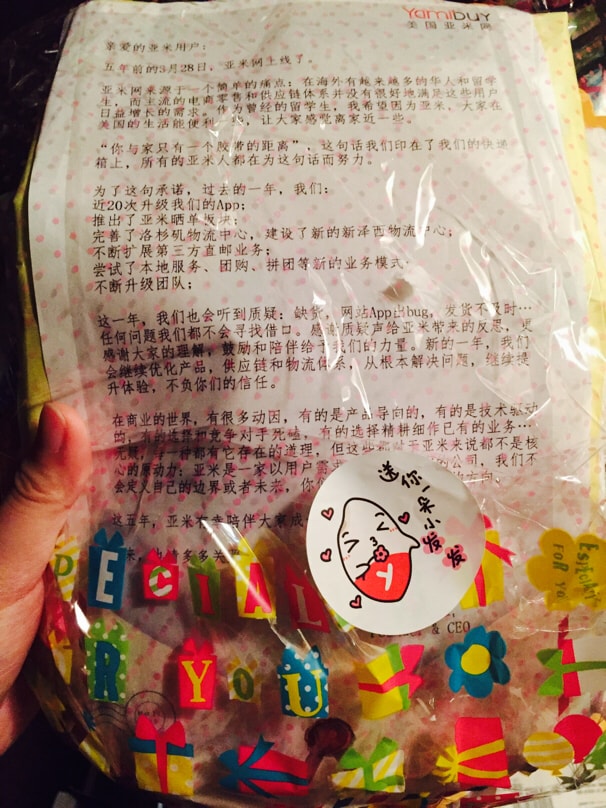 Yamibuy
美国亚米网
亲爱的亚米用户：
五年前的3月28日，亚米网上线了。
亚米网来源于一个简单的痛点：在海外有越来越多的华人和留学
生，而主流的电商零售和供应链体系并没有很好地满足这些用户
日益增长的需求。作为曾经的留学生，我希望因为亚米，大家在
美国的生活能便利一些，让大家感觉离家近一些。
“你与家只有一个胶带的距离”，这句话我们印在了我们的快递
箱上，所有的亚米人都在为这句话而努力。
为了这句承诺，过去的一年，我们：
近20次升级我们的App；
推出了亚米晒单板块；
完善了洛杉矶物流中心，建设了新的新泽西物流中心；
不断扩展第三方直邮业务；
尝试了本地服务、团购、拼团等新的业务模式；
不断升级团队；
这一年，我们也会听到质疑：缺货，网站App出bug，发货不及时…
任何问题我们都不会寻找借口。感谢质疑声给亚米带来的反思，更
感谢大家的理解，鼓励和陪伴给予我们的力量。新的一年，我们
会继续优化产品，供应链和物流体系，从根本解决问题，继续提
升体验，不负你们的信任。
在商业的世界，有很多动因，有的是产品导向的，有的是技术驱动
的，有的选择和竞争对手死磕，有的选择精耕细作已有的业务…
无疑，每一种都有它存在的道理，但这些都对于亚米来说都不是核
心的原动力；亚米是一家以用户需 的公司，我们不
会定义自己的边界或者未来，你
这五年，亚米不 陪伴大家成
来，
多多关
送你一朵小发发
ECIAL
FOR YO
R YOU
& CEO